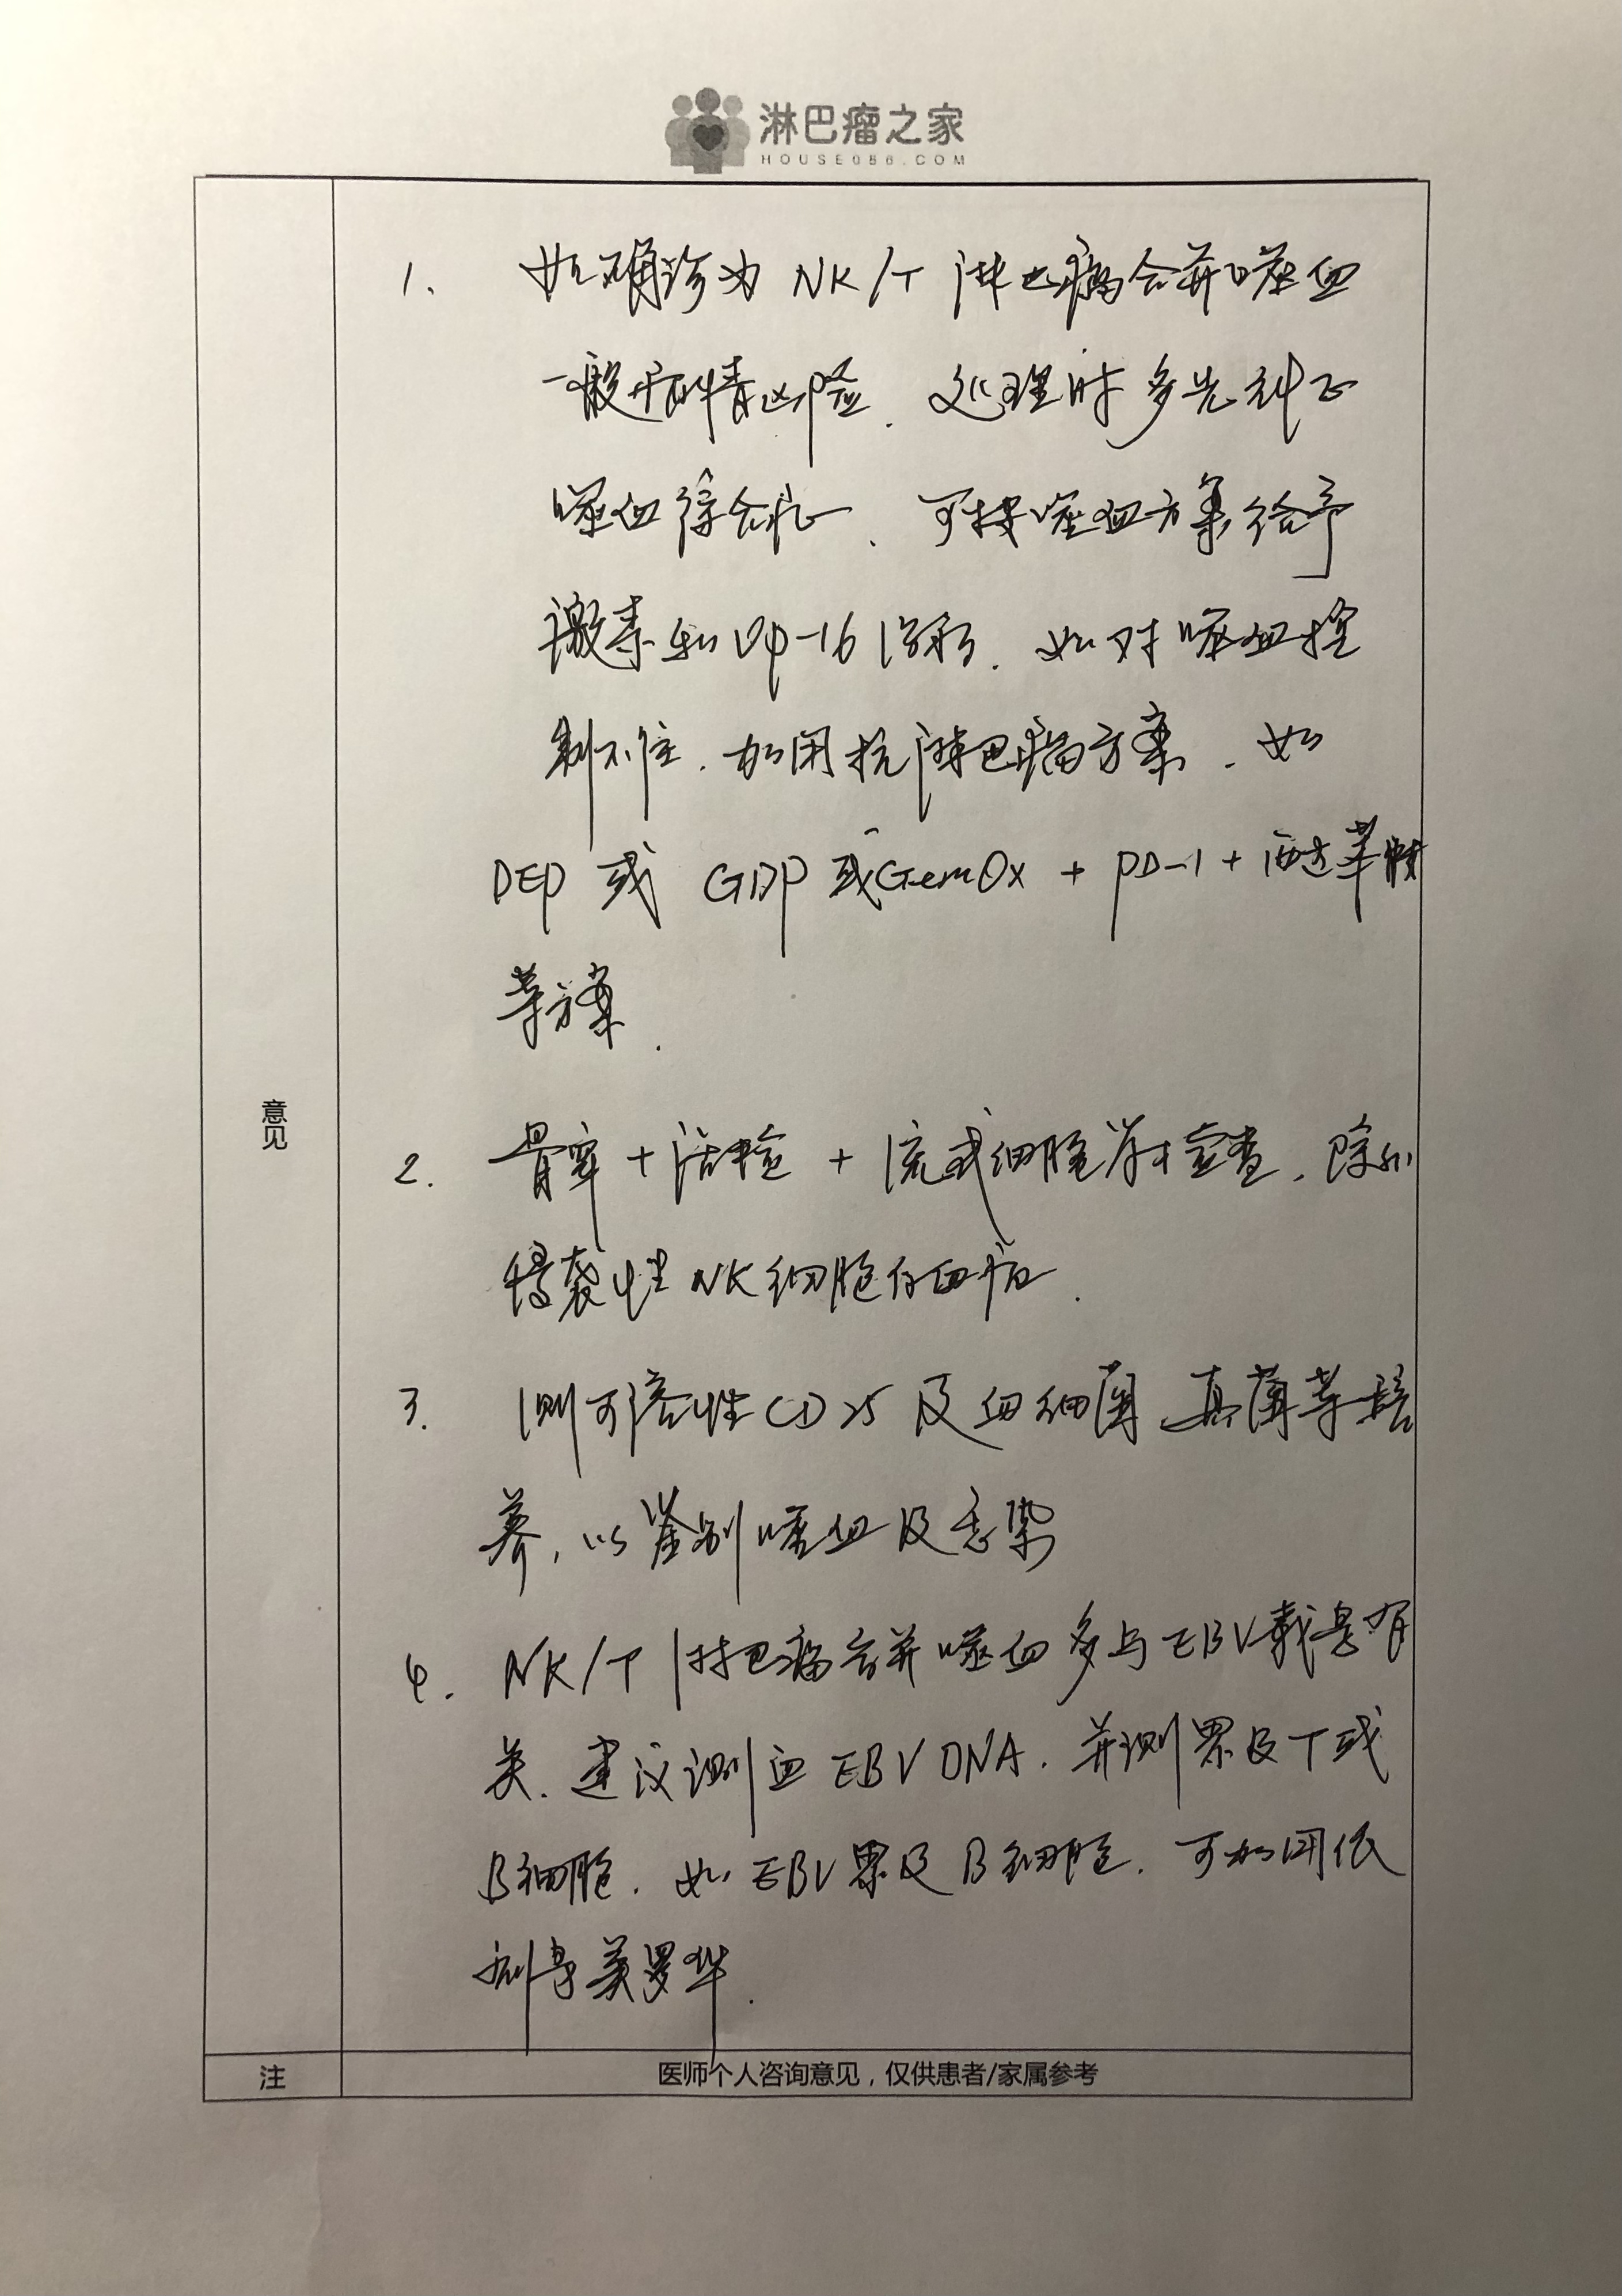 淋巴瘤之家
HOUSE086.COM
1. 如确诊为 NK/T 淋巴瘤合并噬血
一般病情凶险. 处理时多先纠正
噬血综合征、可按噬血方案给予
激素和 Vp-16 治疗. 如对噬血控
制不住. 加用抗淋巴瘤方案. 如
DEP 或 GDP 或 GemOx + PD-1 + 西达苯胺
等方案.
意见
2. 骨穿 + 活检 + 流式细胞学检查, 除外
侵袭性 NK 细胞白血病.
3. 测可溶性 CD25 及血细菌 真菌等培
养, 以鉴别噬血及感染
4. NK/T 淋巴瘤合并噬血多与 EBV 载量有
关. 建议测血 EBV DNA. 并测累及 T 或
B细胞. 如 EBV 累及 B 细胞. 可加用低
剂量美罗华.
注 医师个人咨询意见，仅供患者/家属参考